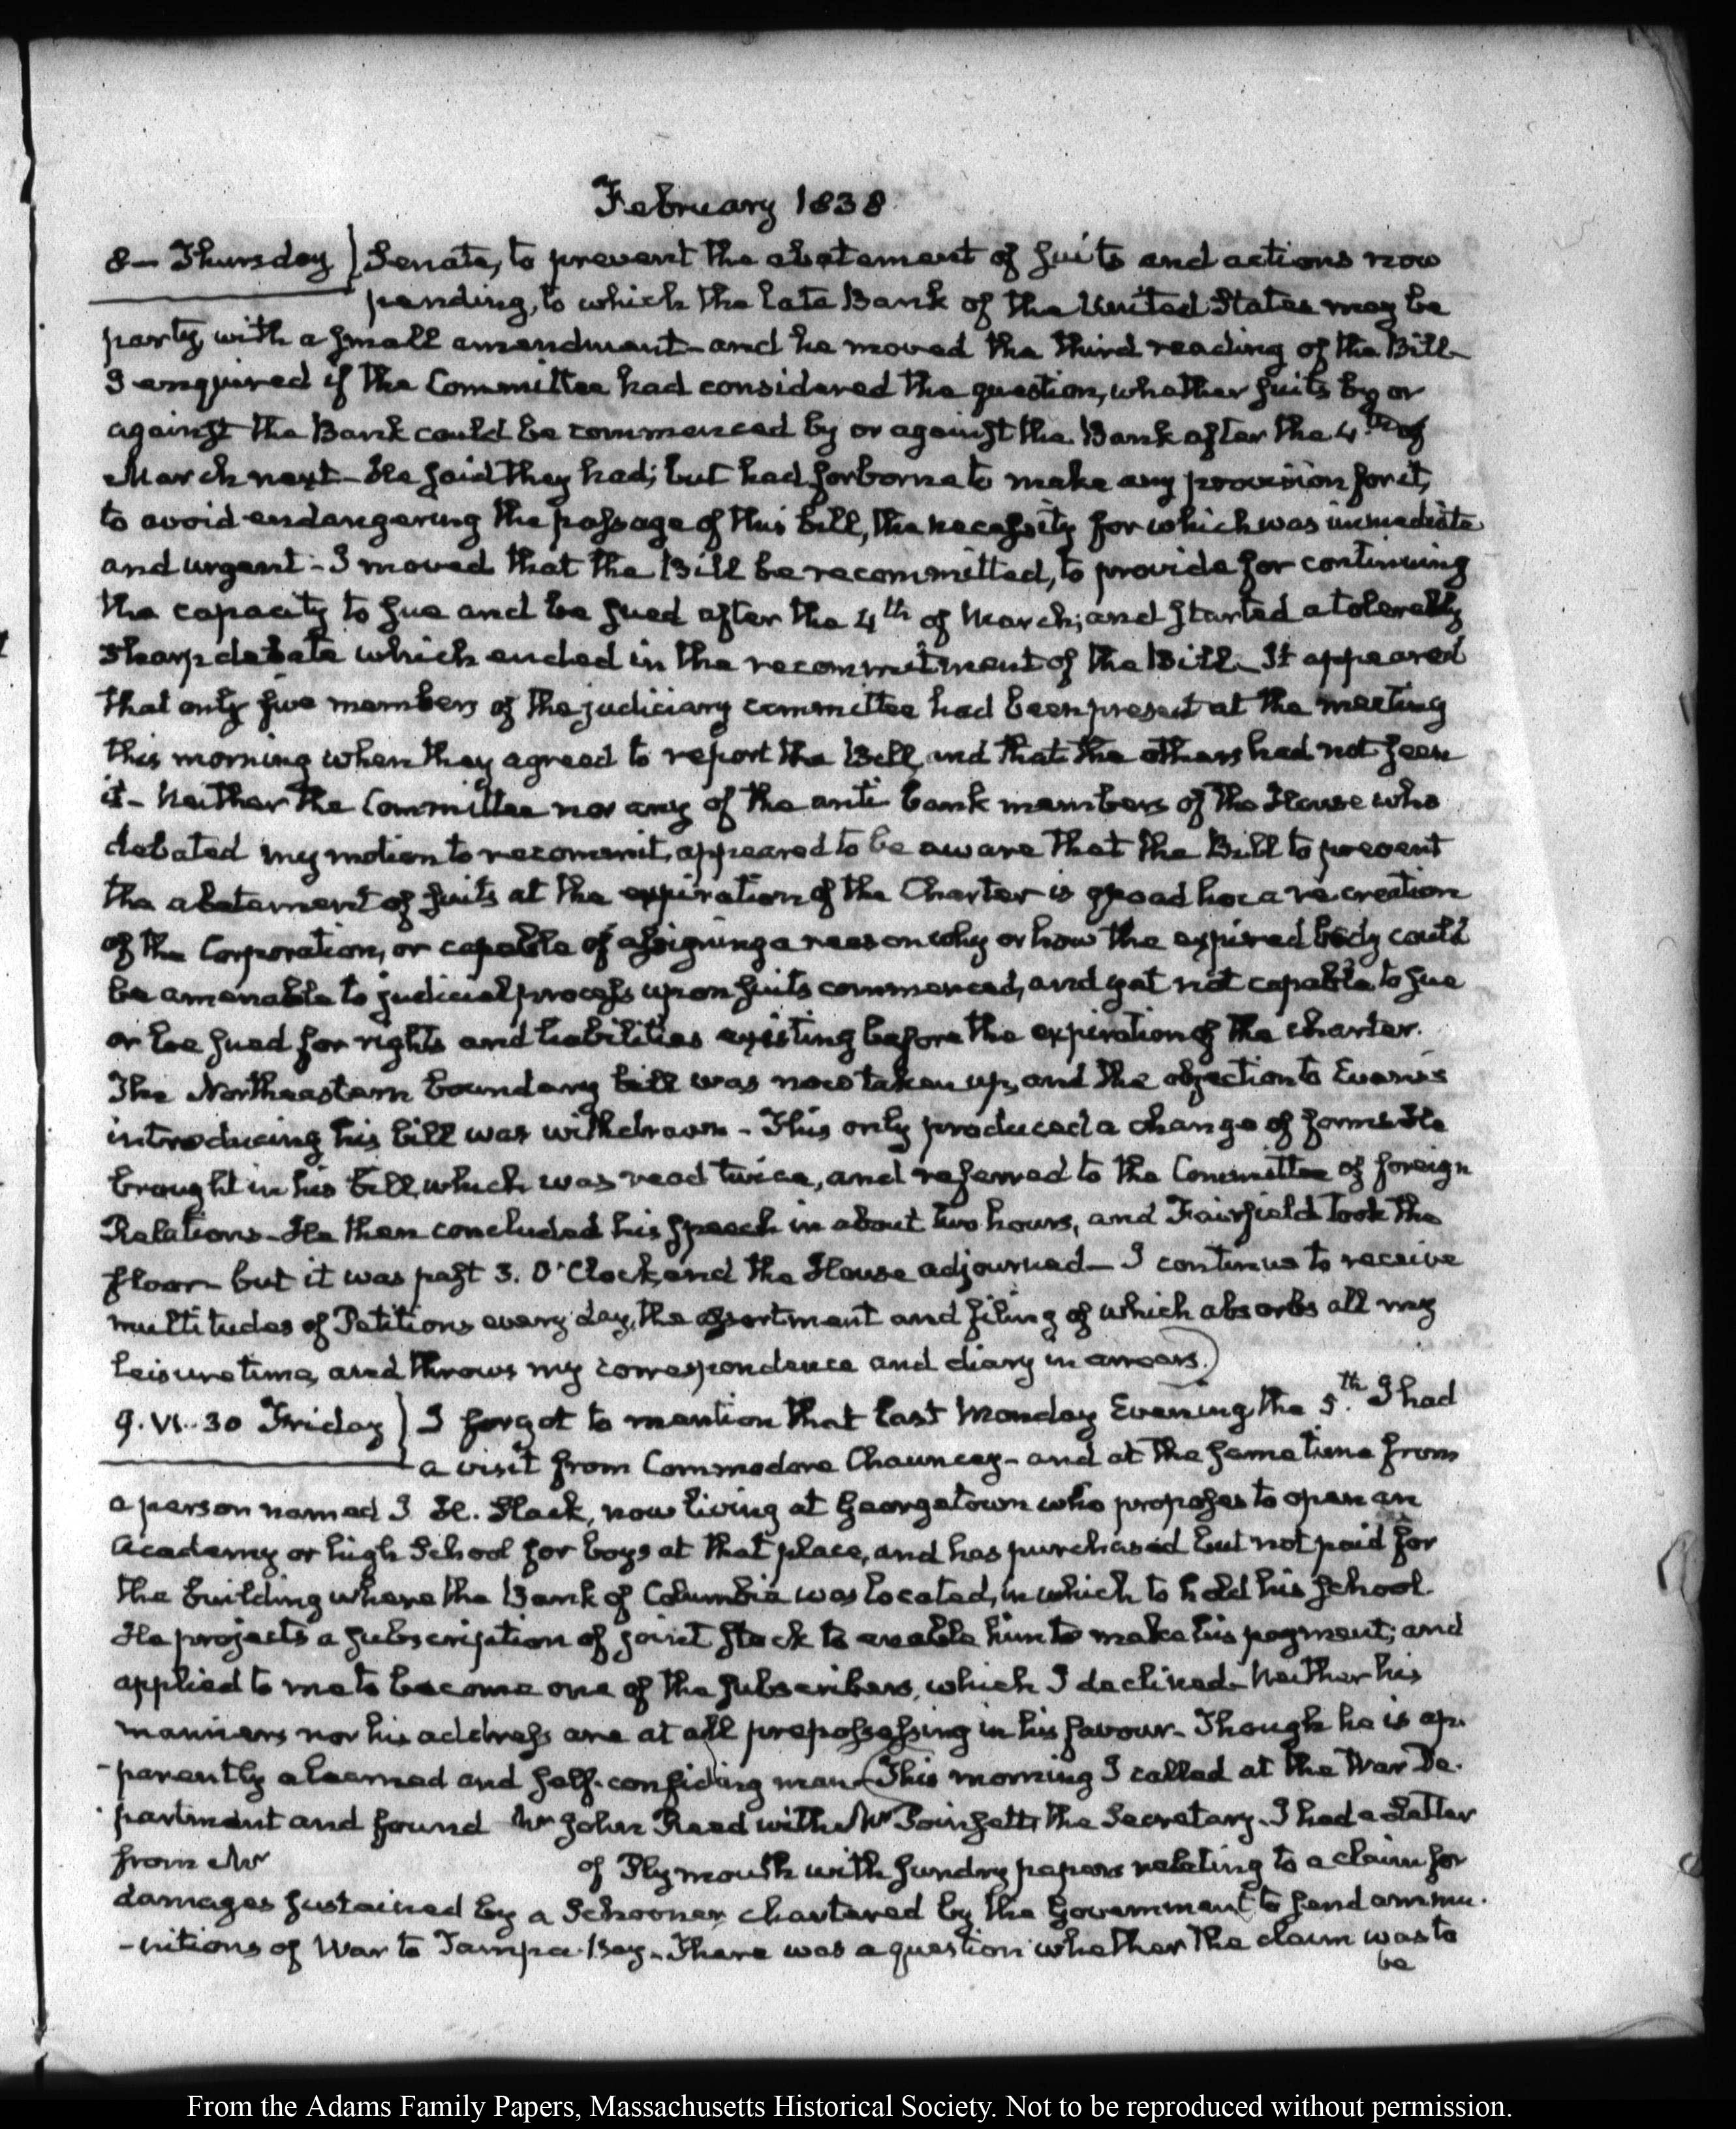 February 1838
8— Thursday } Senate, to prevent the abatement of suits and actions now
pending, to which the late Bank of the United States may be
party, with a small amendment— and he moved the third reading of the Bill—
I enquired if the Committee had considered the question, whether suits by or
against the Bank could be commenced by or against the Bank after the 4th of
March next— He said they had; but had forborne to make any provision for it,
to avoid endangering the passage of this bill, the necessity for which was immediate
and urgent— I moved that the Bill be recommitted, to provide for continuing
the capacity to sue and be sued after the 4th of March; and started a tolerably
sharp debate which ended in the recommitment of the Bill— It appeared
that only five members of the judiciary committee had been present at the meeting
this morning when they agreed to report the Bill, and that the others had not seen
it— Neither the Committee nor any of the anti bank members of the House who
debated my motion to recommit, appeared to be aware that the Bill to prevent
the abatement of suits at the expiration of the Charter is quoad hoc a re creation
of the Corporation, or capable of assigning a reason why or how the expired body could
be amenable to judicial process upon suits commenced, and yet not capable to sue
or be sued for rights and liabilities existing before the expiration of the charter.
The Northeastern boundary bill was now taken up, and the objection to Evans's
introducing his bill was withdrawn— This only produced a change of forms He
brought in his bill, which was read twice, and referred to the Committee of foreign
Relations— He then concluded his speech in about two hours, and Fairfield took the
floor— but it was past 3. O'Clock and the House adjourned— I continue to receive
multitudes of Petitions every day, the assortment and filing of which absorbs all my
leisure time, and throws my correspondence and diary in arrears.)
9. VI..30 Friday } I forgot to mention that last Monday Evening, the 5th. I had
a visit from Commodore Chauncey— and at the same time from
a person named J H. Slack, now living at Georgetown who proposes to open an
Academy or high School for boys at that place, and has purchased but not paid for
the building where the Bank of Columbia was located, in which to hold his school
He projects a subscription of joint stock to enable him to make his payment; and
applied to me to become one of the subscribers, which I declined— Neither his
manners nor his address are at all prepossessing in his favour— Though he is ap-
-parently a learned and self-confiding man— (This morning I called at the War De-
partment and found Mr John Reed with Mr Poinsett, the Secretary— I had a Letter
from Mr of Plymouth with sundry papers relating to a claim for
damages sustained by a Schooner, chartered by the Government to send ammu-
-nitions of War to Tampa Bay— There was a question whether the claim was to
be
From the Adams Family Papers, Massachusetts Historical Society. Not to be reproduced without permission.